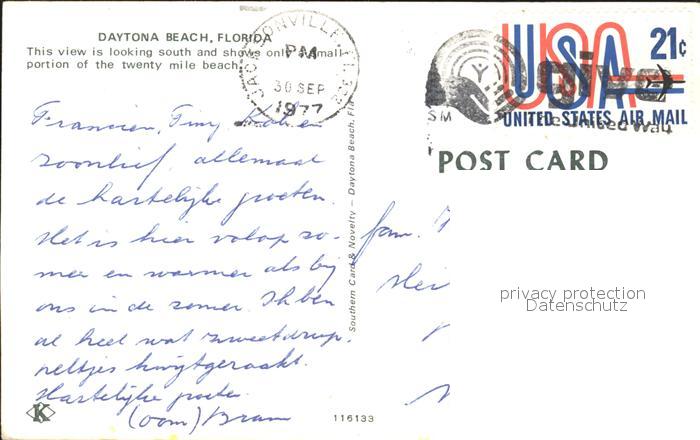 DAYTONA BEACH, FLORIDA
This view is looking south and shows only a small
portion of the twenty mile beach.
JACKSONVILLE, FL
PM
30 SEP
1977
21c
USA
give
The United Way
UNITED STATES AIR MAIL
POST CARD
Francien, Tiny
zoonlief, allemaal
de hartelijke groeten.
Het is hier volop zo-
mer en warmer als bij
ons in de zomer. Ik ben
al heel wat zweetdrup-
peltjes kwijtgeraakt.
Hartelijke groeten
(oom) Bram
Southern Card & Novelty – Daytona Beach, Fla.
fam.
Hei
privacy protection
Datenschutz
K
116133